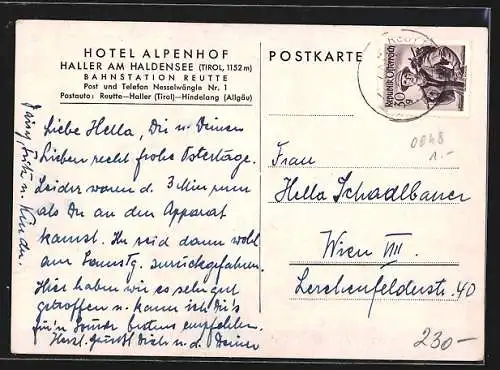 HOTEL ALPENHOF
HALLER AM HALDENSEE (TIROL, 1152 m)
BAHNSTATION REUTTE
Post und Telefon Nesselwängle Nr. 1
Postauto: Reutte—Haller (Tirol)—Hindelang (Allgäu)
Liebe Hella, Dir u. Deinen
Lieben recht frohe Ostertage.
Leider waren d. 3 Min um
als Du an den Apparat
kamst. Ihr seid dann wohl
am Samstg. zurückgefahren.
Hier haben wir es sehr gut
getroffen u. kann ich Dir's
für'n Sommer bestens empfehlen.
Herzl. grüßt Dich u. d. Deinen
u. Kinder.
POSTKARTE
Republik Österreich
30 g
0048
1.-
Frau
Hella Schadlbauer
Wien VIII.
Lerchenfelderstr. 40
230-